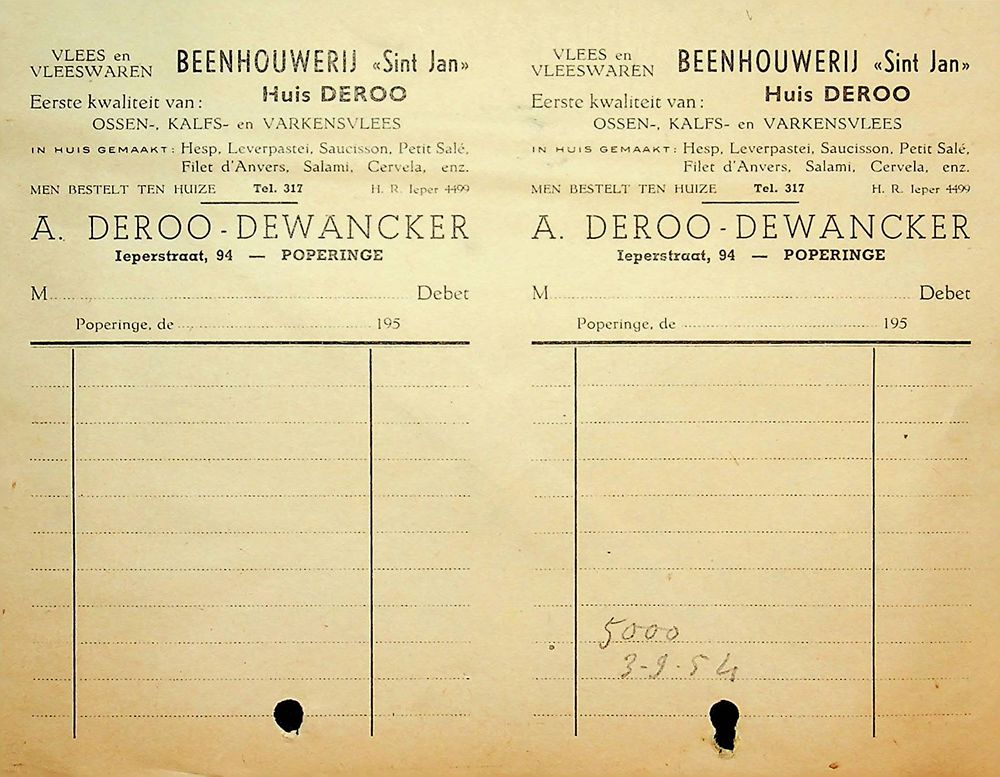 VLEES en
VLEESWAREN
BEENHOUWERIJ «Sint Jan»
Huis DEROO
Eerste kwaliteit van :
OSSEN-, KALFS- en VARKENSVLEES
IN HUIS GEMAAKT : Hesp, Leverpastei, Saucisson, Petit Salé,
Filet d'Anvers, Salami, Cervela, enz.
MEN BESTELT TEN HUIZE Tel. 317 H. R. Ieper 4499
A. DEROO-DEWANCKER
Ieperstraat, 94 — POPERINGE
M Debet
Poperinge, de 195
VLEES en
VLEESWAREN
BEENHOUWERIJ «Sint Jan»
Huis DEROO
Eerste kwaliteit van :
OSSEN-, KALFS- en VARKENSVLEES
IN HUIS GEMAAKT : Hesp, Leverpastei, Saucisson, Petit Salé,
Filet d'Anvers, Salami, Cervela, enz.
MEN BESTELT TEN HUIZE Tel. 317 H. R. Ieper 4499
A. DEROO-DEWANCKER
Ieperstraat, 94 — POPERINGE
M Debet
Poperinge, de 195
5000
3-9-54